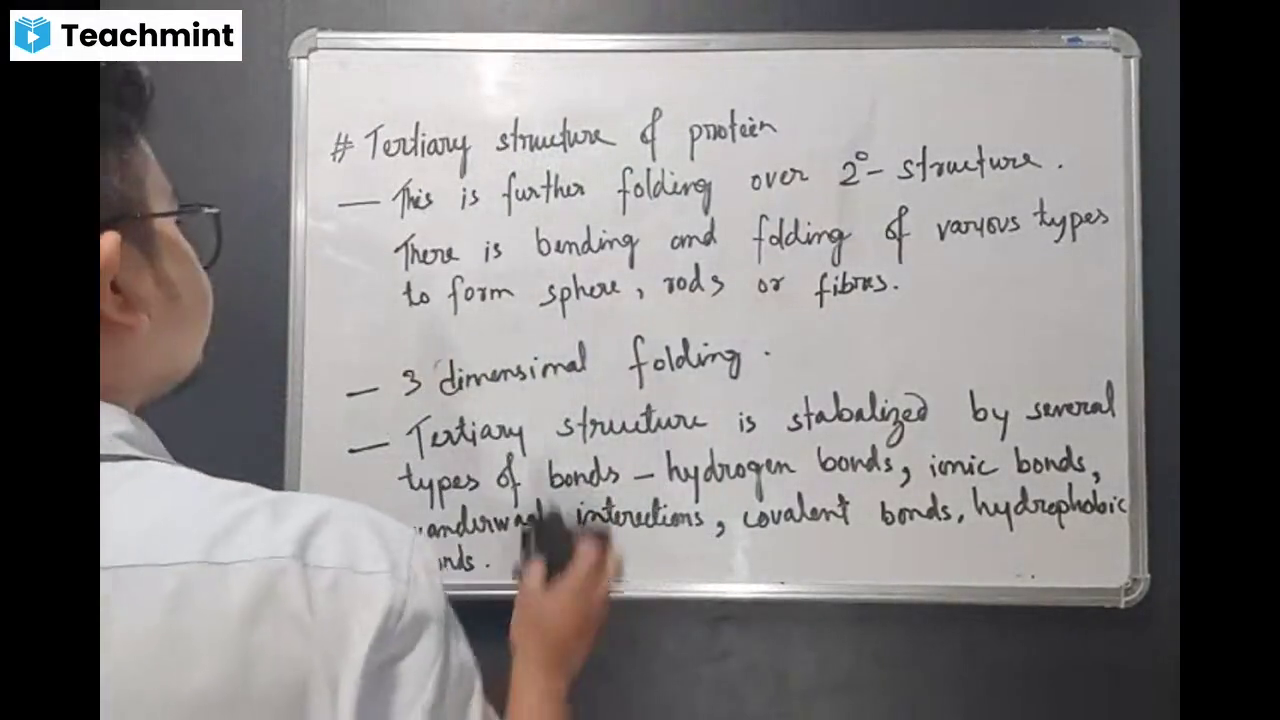 Teachmint
# Tertiary structure of protein
— This is further folding over 2° - structure.
There is bending and folding of various types
to form sphere, rods or fibres.
— 3 dimensional folding.
— Tertiary structure is stabalized by several
types of bonds - hydrogen bonds, ionic bonds,
interections, covalent bonds, hydrophobic